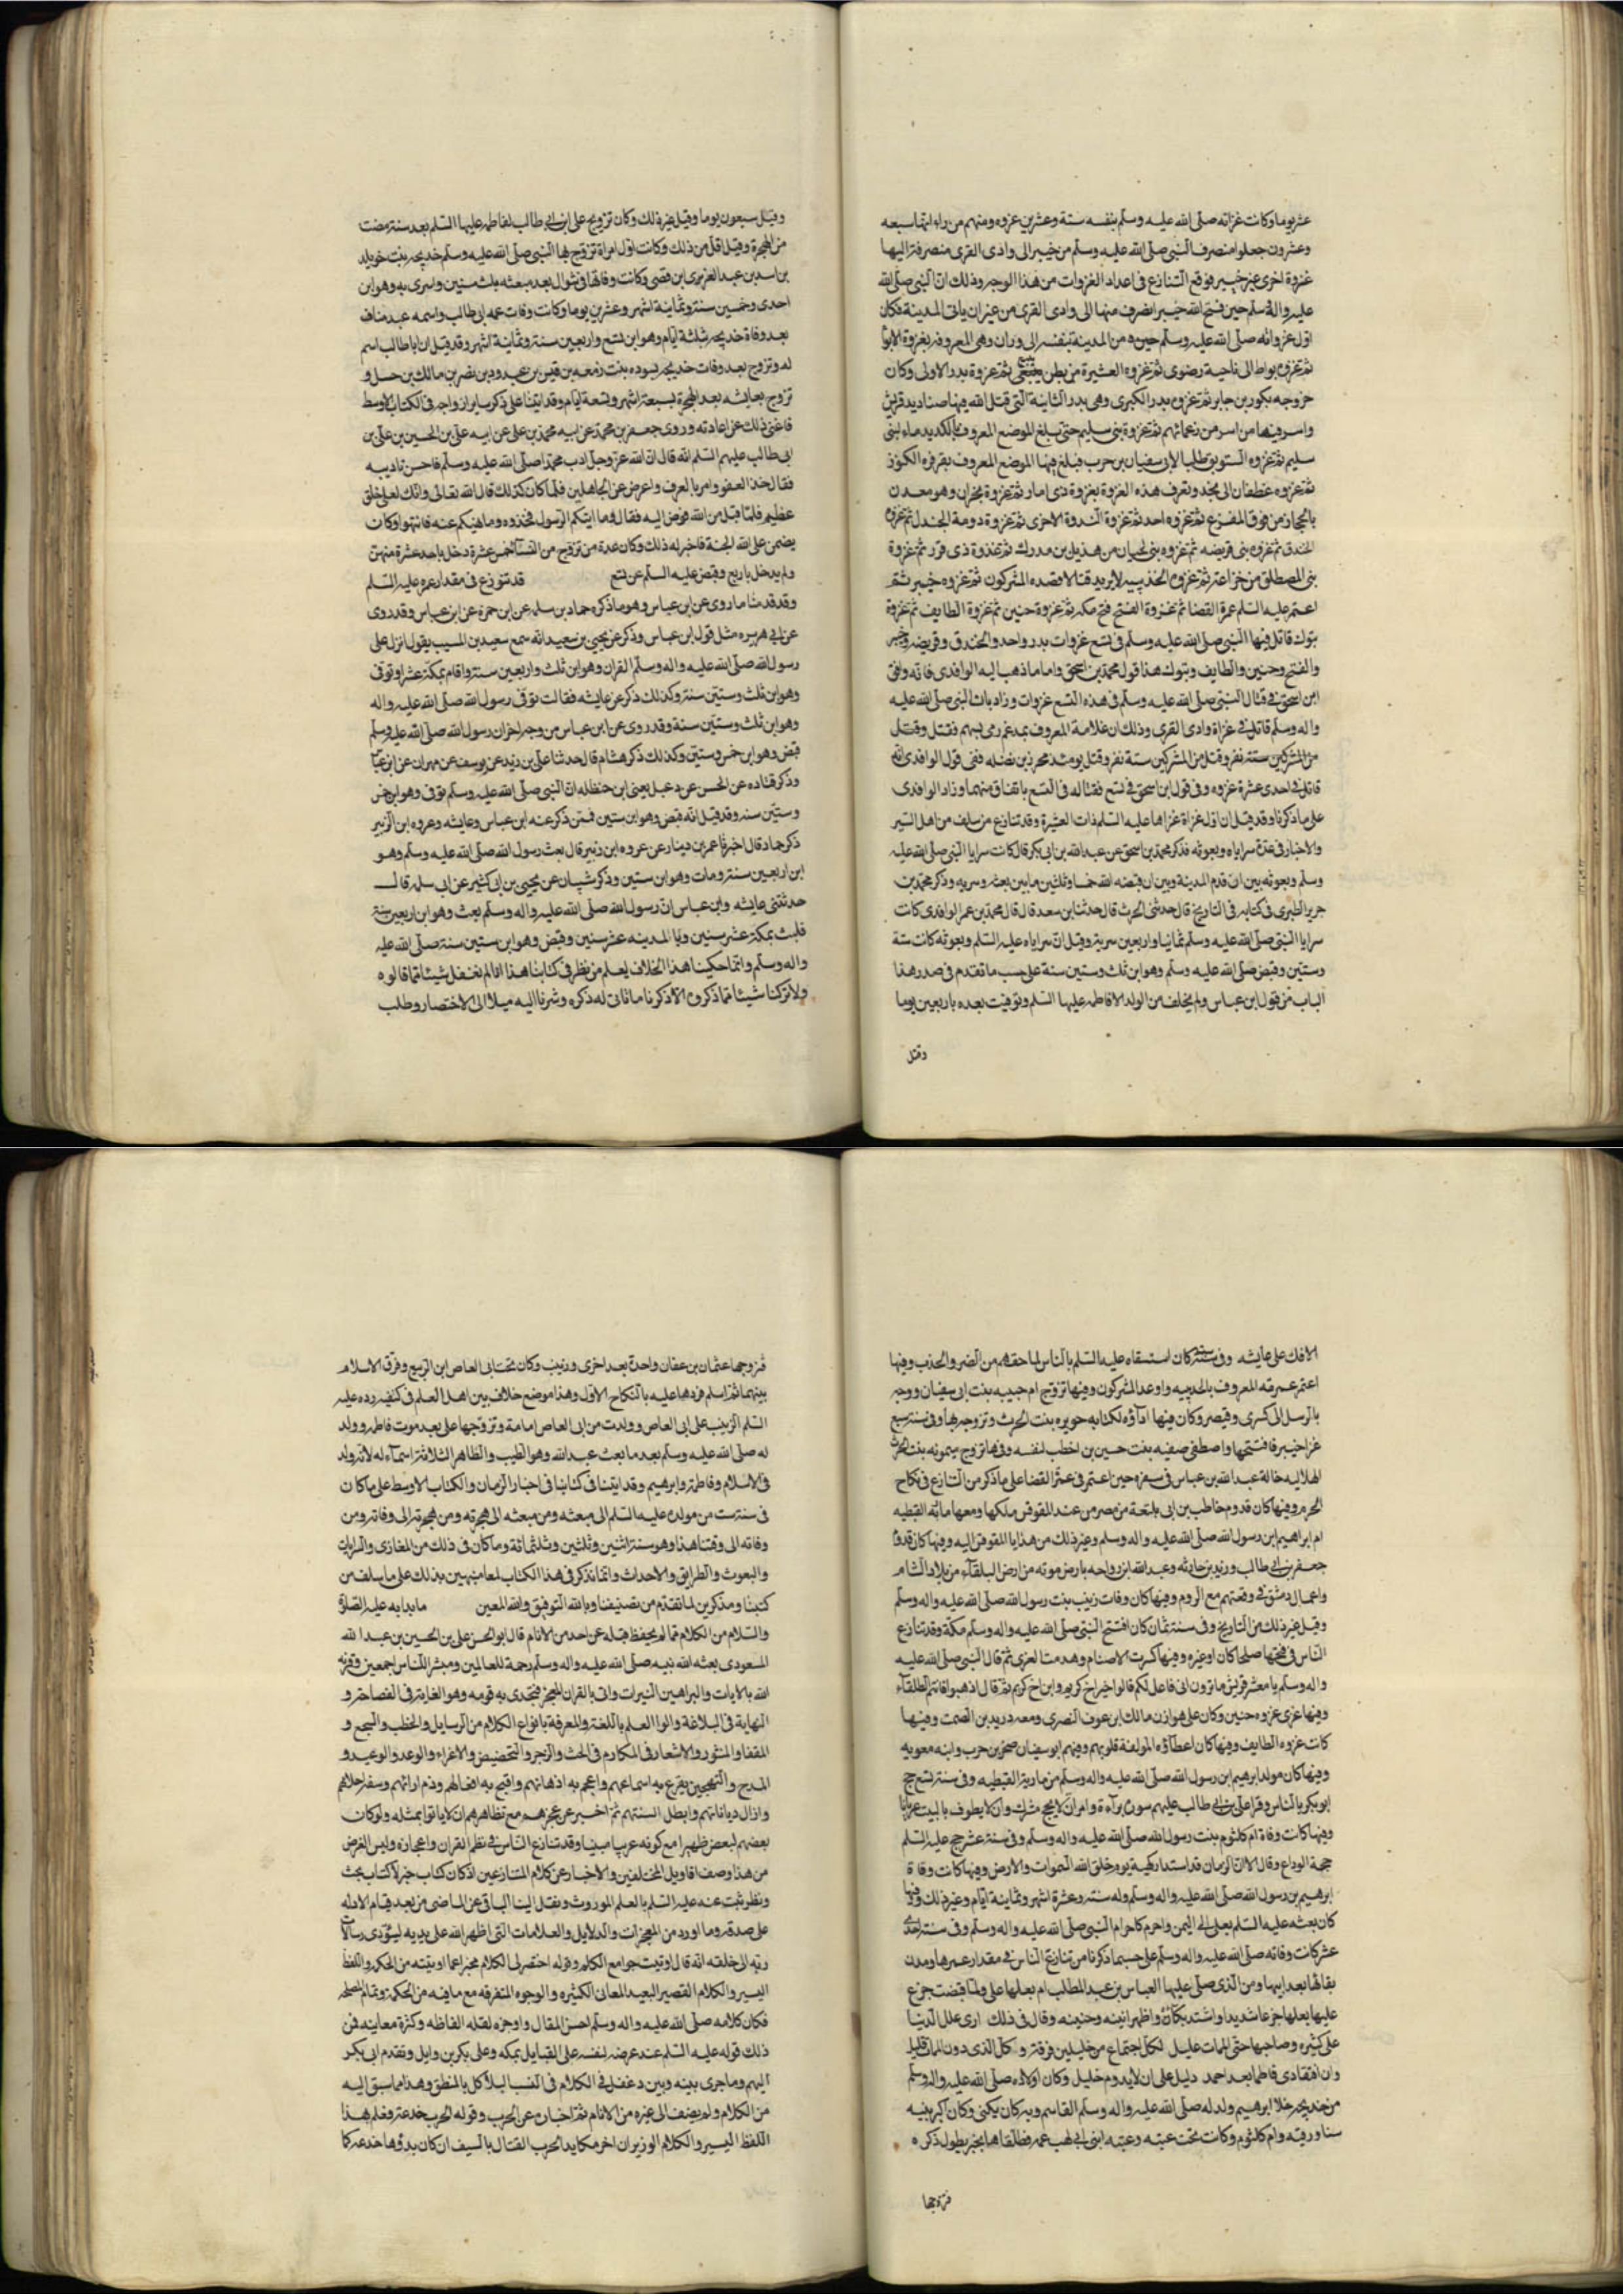 عشر يوما وكانت غزاته صلى الله عليه وسلم بنفسه ستة وعشرين غزوه ومنهم من راء انها سبعه
وعشرون جعلوا منصرف النبى صلى الله عليه وسلم من خيبر الى وادى القرى منصرفتر اليها
غزوة اخرى غير خيبر فوقع التنازع فى اعداد الغزوات من هذا الوجه وذلك ان النبى صلى الله
عليه واله وسلم حين فتح الله خيبر انصرف منها الى وادى القرى من غير ان ياتى المدينة فكان
اول غزواته صلى الله عليه وسلم حين من المدينة بنفسه الى وران وهى المعروفه بغزوة الابوا
ثم غزوه بواط الى ناحية رضوى ثم غزوه العشيرة من بطن ينبع ثم غزوة بدر الاولى وكان
خروجه بكور بن جابر ثم غزوه بدر الكبرى وهى بدر الثانية التى قتل الله فيها صناديد قريش
واسر فيها من اسر من زعمائهم ثم غزوة بنى سليم حتى بلغ الموضع المعروف بالكديد ماء لبنى
سليم ثم غزوه السويق طلبا لابى سفيان بن حرب فبلغ فيها الموضع المعروف بقرقره الكوز
ثم غزوه غطفان الى نجد وتعرف هذه الغزوة بغزوة ذى امار ثم غزوة بحران وهو معدن
بالحجاز من فوق المفرع ثم غزوه احد ثم غزوة الندوة الاخرى ثم غزوة دومة الجندل ثم غزوه
الخندق ثم غزوه بنى قريضه ثم غزوه بنى لحيان من هذيل بن مدرك ثم غزوة ذى قرد ثم غزوة
بنى المصطلق من خزاعة ثم غزوه الحديبيه لا يريد قتالا فصده المشركون ثم غزوه خيبر ثم
اعتمر عليه السلم عمرة القضا ثم غزوة الفتح فتح مكه ثم غزوة حنين ثم غزوة الطايف ثم غزوة
تبوك قاتل فيها النبى صلى الله عليه وسلم فى تسع غزوات بدر واحد والخندق وقريضه وخيبر
والفتح وحنين والطايف وتبوك هذا قول محمد بن اسحق واما ما ذهب اليه الواقدى فانه وافق
ابن اسحق فى قتال النبى صلى الله عليه وسلم فى هذه التسع غزوات وزاد بان النبى صلى الله عليه
واله وسلم قاتل فى غزاة وادى القرى وذلك ان غلامه المعروف بمدعم رمى بسهم فقتل وقتل
من المشركين ستة نفر وقتل من المشركين ستة نفر وقتل يومئذ محرز بن نضله ففى قول الواقدى انه
قاتل فى احدى عشرة غزوه وفى قول ابن اسحق فى تسع فقتاله فى التسع باتفاق منهما وزاد الواقدى
على ما ذكرنا وقد قيل ان اول غزاة غزاها عليه السلم ذات العشيرة وقد تنازع من سلف من اهل السير
والاخبار فى عدة سراياه وبعوثه فذكر محمد بن اسحق عن عبد الله بن ابى بكر قال كانت سرايا النبى صلى الله عليه
وسلم وبعوثه بين ان قدم المدينة وبين ان قبضه الله خمسا وثلثين ما بين بعث وسريه وذكر محمد بن
جرير الطبرى فى كتابه فى التاريخ قال حدثنى الحرث قال حدثنا بن سعد قال قال محمد بن عمر الواقدى كانت
سرايا النبى صلى الله عليه وسلم ثمانيا واربعين سرية وقيل ان سراياه عليه السلم وبعوثه كانت ستة
وستين وقبض صلى الله عليه وسلم وهو ابن ثلث وستين سنة على حسب ما تقدم فى صدر هذا
الباب من قول ابن عباس ولم يخلف من الولد الا فاطمه عليها السلم وتوفيت بعده باربعين يوما
وقيل
وقيل سبعون يوما وقيل غير ذلك وكان تزويج على ابن ابى طالب لفاطمه عليها السلم بعد سنة مضت
من الهجرة وقيل اقل من ذلك وكانت اول امراة تزوج بها النبى صلى الله عليه وسلم خديجه بنت خويلد
بن اسد بن عبد العزى ابن قصى وكانت وفاتها فى شوال بعد مبعثه بثلث سنين واسرى به وهو ابن
احدى وخمسين سنة وثمانية اشهر وعشرين يوما وكانت وفات عمه ابى طالب واسمه عبد مناف
بعد وفاة خديجه بثلثة ايام وهو ابن تسع واربعين سنة وثمانية اشهر وقد قيل ان ابا طالب اسم
له وتزوج بعد وفات خديجه بسوده بنت زمعه بن قيس بن عبد ود بن نضر بن مالك بن حسل و
تزوج بعايشه بعد الهجرة بسبعة اشهر وتسعة ايام وقد اتينا على ذكر ساير ازواجه فى الكتاب الاوسط
فاغنى ذلك عن اعادته وروى جعفر بن محمد عن ابيه محمد بن على عن ابيه على بن الحسين بن على بن
ابى طالب عليهم السلم انه قال ان الله عز وجل ادب محمدا صلى الله عليه وسلم فاحسن تاديبه
فقال خذ العفو وامر بالعرف واعرض عن الجاهلين فلما كان كذلك قال الله تعالى وانك لعلى خلق
عظيم فلما قبل من الله فوض اليه فقال وما اتيكم الرسول فخذوه وما نهيكم عنه فانتهوا وكان
يضمن على الله الجنة فاخبر له ذلك وكان عدة من تزوج من النسآ خمس عشرة دخل باحد عشرة منهن
ولم يدخل باربع وقبض عليه السلم عن تسع قد تنوزع فى مقدار عمره عليه السلم
وقد قدمنا ما روى عن ابن عباس وهو ما ذكره حماد بن سلمه عن ابن حمزة عن ابن عباس وقد روى
عن ابى هريره مثل قول ابن عباس وذكر عن يحيى بن سعيد انه سمع سعيد بن المسيب يقول انزل على
رسول الله صلى الله عليه واله وسلم القران وهو ابن ثلث واربعين سنة واقام بمكة عشرا وتوفى
وهو ابن ثلث وستين سنة وكذلك ذكر عن عايشه فقالت توفى رسول الله صلى الله عليه واله
وهو ابن ثلث وستين سنة وقد روى عن ابن عباس من وجه اخر ان رسول الله صلى الله عليه وسلم
قبض وهو ابن خمس وستين وكذلك ذكر هشام قال حدثنا على بن زيد عن يوسف عن مهران عن ابن عباس
وذكر قتاده عن الحسن عن دعبل يعنى ابن حنظله ان النبى صلى الله عليه وسلم توفى وهو ابن خمس
وستين سنه وقد قيل انه قبض وهو ابن ستين فمن ذكر عنه ابن عباس وعايشه وعروه ابن الزبير
ذكر حماد قال اخبرنا عمر بن دينار عن عروه ابن زبير قال بعث رسول الله صلى الله عليه وسلم وهو
ابن اربعين سنة ومات وهو ابن ستين وذكر شيبان عن يحيى بن ابى كثير عن ابى سلمه قال
حدثتنى عايشه وابن عباس ان رسول الله صلى الله عليه واله وسلم بعث وهو ابن اربعين سنة
فلبث بمكة عشر سنين وبالمدينه عشر سنين وقبض وهو ابن ستين سنة صلى الله عليه
واله وسلم وانما حكينا هذا الخلاف ليعلم من نظر فى كتابنا هذا انا لم نغفل شيئا مما قالوه
ولا تركنا شيئا مما ذكروه الا ذكرنا ما تاتى له ذكره وشرنا اليه ميلا الى الاختصار وطلب
الافك على عايشه وفى سنة ست كان استسقاه عليه السلم بالناس لما حقهم من الضر والجدب وفيها
اعتمر عمرته المعروف بالحديبيه واوعد المشركون وفيها تزوج ام حبيبه بنت ابى سفيان ووجه
بالرسل الى كسرى وقيصر وكان فيها اداؤه لكتابه جويره بنت الحرث وتزوجه بها وفى سنة سبع
غزا خيبر فافتتحها واصطفى صفيه بنت حسين بن اخطب لنفسه وفيها تزوج ميمونه بنت الحرث
الهلاليه خالة عبد الله بن عباس فى سفره حين اعتمر فى عمرة القضا على ما ذكر من التنازع فى نكاح
المحرم وفيها كان قدوم خاطب بن ابى بلتعة من مصر من عند المقوقس ملكها ومعها ماريه القبطيه
ام ابراهيم ابن رسول الله صلى الله عليه واله وسلم وغير ذلك من هدايا المقوقس اليه وفيها كان قدوم
جعفر بن ابى طالب وزيد بن حارثه وعبد الله ابن رواحه بارض موته من ارض البلقاء من بلاد الشام
واعمال دمشق فى وقعتهم مع الروم وفيها كان وفات زينب بنت رسول الله صلى الله عليه واله وسلم
وقيل غير ذلك من التاريخ وفى سنة ثمان كان افتتح النبى صلى الله عليه واله وسلم مكة وقد تنازع
الناس فى فتحها صلحا كان او غيره وفيها كسرت الاصنام وهدمت العزى ثم قال النبى صلى الله عليه
واله وسلم يا معشر قريش ما ترون انى فاعل لكم قالوا خيرا اخ كريم وابن اخ كريم ثم قال اذهبوا فانتم الطلقاء
وفيها غزى غزوه حنين وكان على هوازن مالك ابن عوف النصرى ومعه دريد بن الصمت وفيها
كانت غزوه الطايف وفيها كان اعطآؤه المولفة قلوبهم وفيهم ابو سفيان صخر بن حرب وابنه معويه
وفيها كان مولد ابرهيم ابن رسول الله صلى الله عليه واله وسلم من مارية القبطيه وفى سنة تسع حج
ابو بكر بالناس وقرا على بن ابى طالب عليهم سورة برآءة وامر ان لا يحج مشرك وان لا يطوف بالبيت عريانا
وفيها كانت وفاة ام كلثوم بنت رسول الله صلى الله عليه واله وسلم وفى سنة عشر حج عليه السلم
حجة الوداع وقال الا ان الزمان قد استدار كهيئة يوم خلق الله السموات والارض وفيها كانت وفاة
ابرهيم بن رسول الله صلى الله عليه واله وسلم وله سنة وعشرة اشهر وثمانية ايام وغير ذلك وفيها
كان بعثه عليه السلم بعلى الى اليمن واحرم كاحرام النبى صلى الله عليه واله وسلم وفى سنة احدى
عشر كانت وفاته صلى الله عليه واله وسلم على حسب ما ذكرنا من تنازع الناس فى مقدار عمرها ومدة
بقائها بعد ابيها ومن الذى صلى عليها العباس بن عبد المطلب ام بعلها على ولما قبضت جزع
عليها بعلها جزعا شديدا واشتد بكاؤه واظهر انينه وحنينه وقال فى ذلك ارى علل الدنيا
على كثيره وصاحبها حتى الممات عليل لكل اجتماع من خليلين فرقة وكل الذى دون الممات قليل
وان افتقادى فاطما بعد احمد دليل على ان لا يدوم خليل وكان اولاده صلى الله عليه واله وسلم
من خديجه خلا ابرهيم ولد له صلى الله عليه واله وسلم القاسم وبه كان يكنى وكان اكبر بنيه
سنا ورقيه وام كلثوم وكانت تحت عتبه وعتيبه ابنى ابى لهب عمه فطلقاها بخبر يطول ذكره
فتزوجها
فتزوجها عثمان بن عفان واحدة بعد اخرى وزينب وكان تحت ابى العاص ابن الربيع وفرق الاسلام
بينهما ثم اسلم فردها عليه بالنكاح الاول وهذا موضع خلاف بين اهل العلم فى كيفيه رده عليه
السلم الزينب على ابى العاص وولدت من ابى العاص امامة وتزوجها على بعد موت فاطمه وولد
له صلى الله عليه وسلم بعد ما بعث عبد الله وهو الطيب والطاهر الثلاثة اسماء له لانه ولد
فى الاسلام وفاطمة وابرهيم وقد اتينا فى كتابنا فى اخبار الزمان والكتاب الاوسط على ما كان
فى سنة ست من مولده عليه السلم الى مبعثه ومن مبعثه الى هجرته ومن هجرته الى وفاته ومن
وفاته الى وقتنا هذا وهو سنة اثنين وثلثين وثلثمائة وما كان فى ذلك من المغازى والسرايات
والبعوث والطرايق والاحداث وانما نذكر فى هذا الكتاب لمعا منبهين بذلك على ما سلف من
كتبنا ومذكرين لما تقدم من تصنيفنا وبالله التوفيق والله المعين ما بدا به عليه الصلوة
والسلام من الكلام مما لم يحفظ قبله عن احد من الانام قال ابو الحسن على بن الحسين بن عبد الله
المسعودى بعثه الله نبيه صلى الله عليه واله وسلم رحمة للعالمين ومبشر للناس اجمعين وقرنه
الله بالايات والبراهين النيرات واتى بالقران المعجز فتحدى به قومه وهو الغاية فى الفصاحة و
النهاية فى البلاغة والوا العلم باللغة والمعرفة بانواع الكلام من الرسايل والخطب والسجع و
المقفا والمنثور والاشعار فى المكارم فى الحث والزجر والتحضيض والاغراء والوعد والوعيد و
المدح والتهجين يقرع به اسماعهم واعجم به اذهانهم واقبح به افعالهم وذم ارائهم وسفه احلامهم
وازال دياناتهم وابطل السنتهم ثم اخبر عن عجزهم مع تظاهرهم ان لا ياتوا بمثله ولو كان
بعضهم لبعض ظهيرا مع كونه عربيا مبينا وقد تنازع الناس فى نظم القران واعجازه وليس الغرض
من هذا وصف اقاويل المختلفين والاخبار عن كلام المتنازعين اذ كان كتاب خبر لا كتاب بحث
ونظر ثبت عنه عليه السلم بالعلم الموروث ونقل الينا الباقى عن الماضى من بعد قيام الادله
على صدقه وما اورد من المعجزات والدلايل والعلامات التى اظهر الله على يديه ليؤدى رسالات
ربه الى خلقه انه قال اوتيت جوامع الكلم وقوله اختصر لى الكلام مخبرا عما اوتيته من الحكم واللفظ
اليسير والكلام القصير البعيد المعان الكثيره والوجوه المتفرقه مع ما فيه من الحكمة وتمام المصلحه
فكان كلامه صلى الله عليه واله وسلم احسن المقال واوجزه لقله الفاظه وكثرة معاينه فمن
ذلك قوله عليه السلم عند عرضه لنفسه على القبايل بمكه وعلى بكر بن وايل وتقدم ابى بكر
اليهم وما جرى بينه وبين دغفل فى الكلام فى النسب البلا كل بالمنطق وهذا مما سبق اليه
من الكلام ولم يضف الى غيره من الانام ثم اخباره عن الحرب وقوله الحرب خدعة فعلم هذا
اللفظ اليسير والكلام الوزير ان اخر مكايد الحرب القتال بالسيف ان كان بدؤها خدعه كما